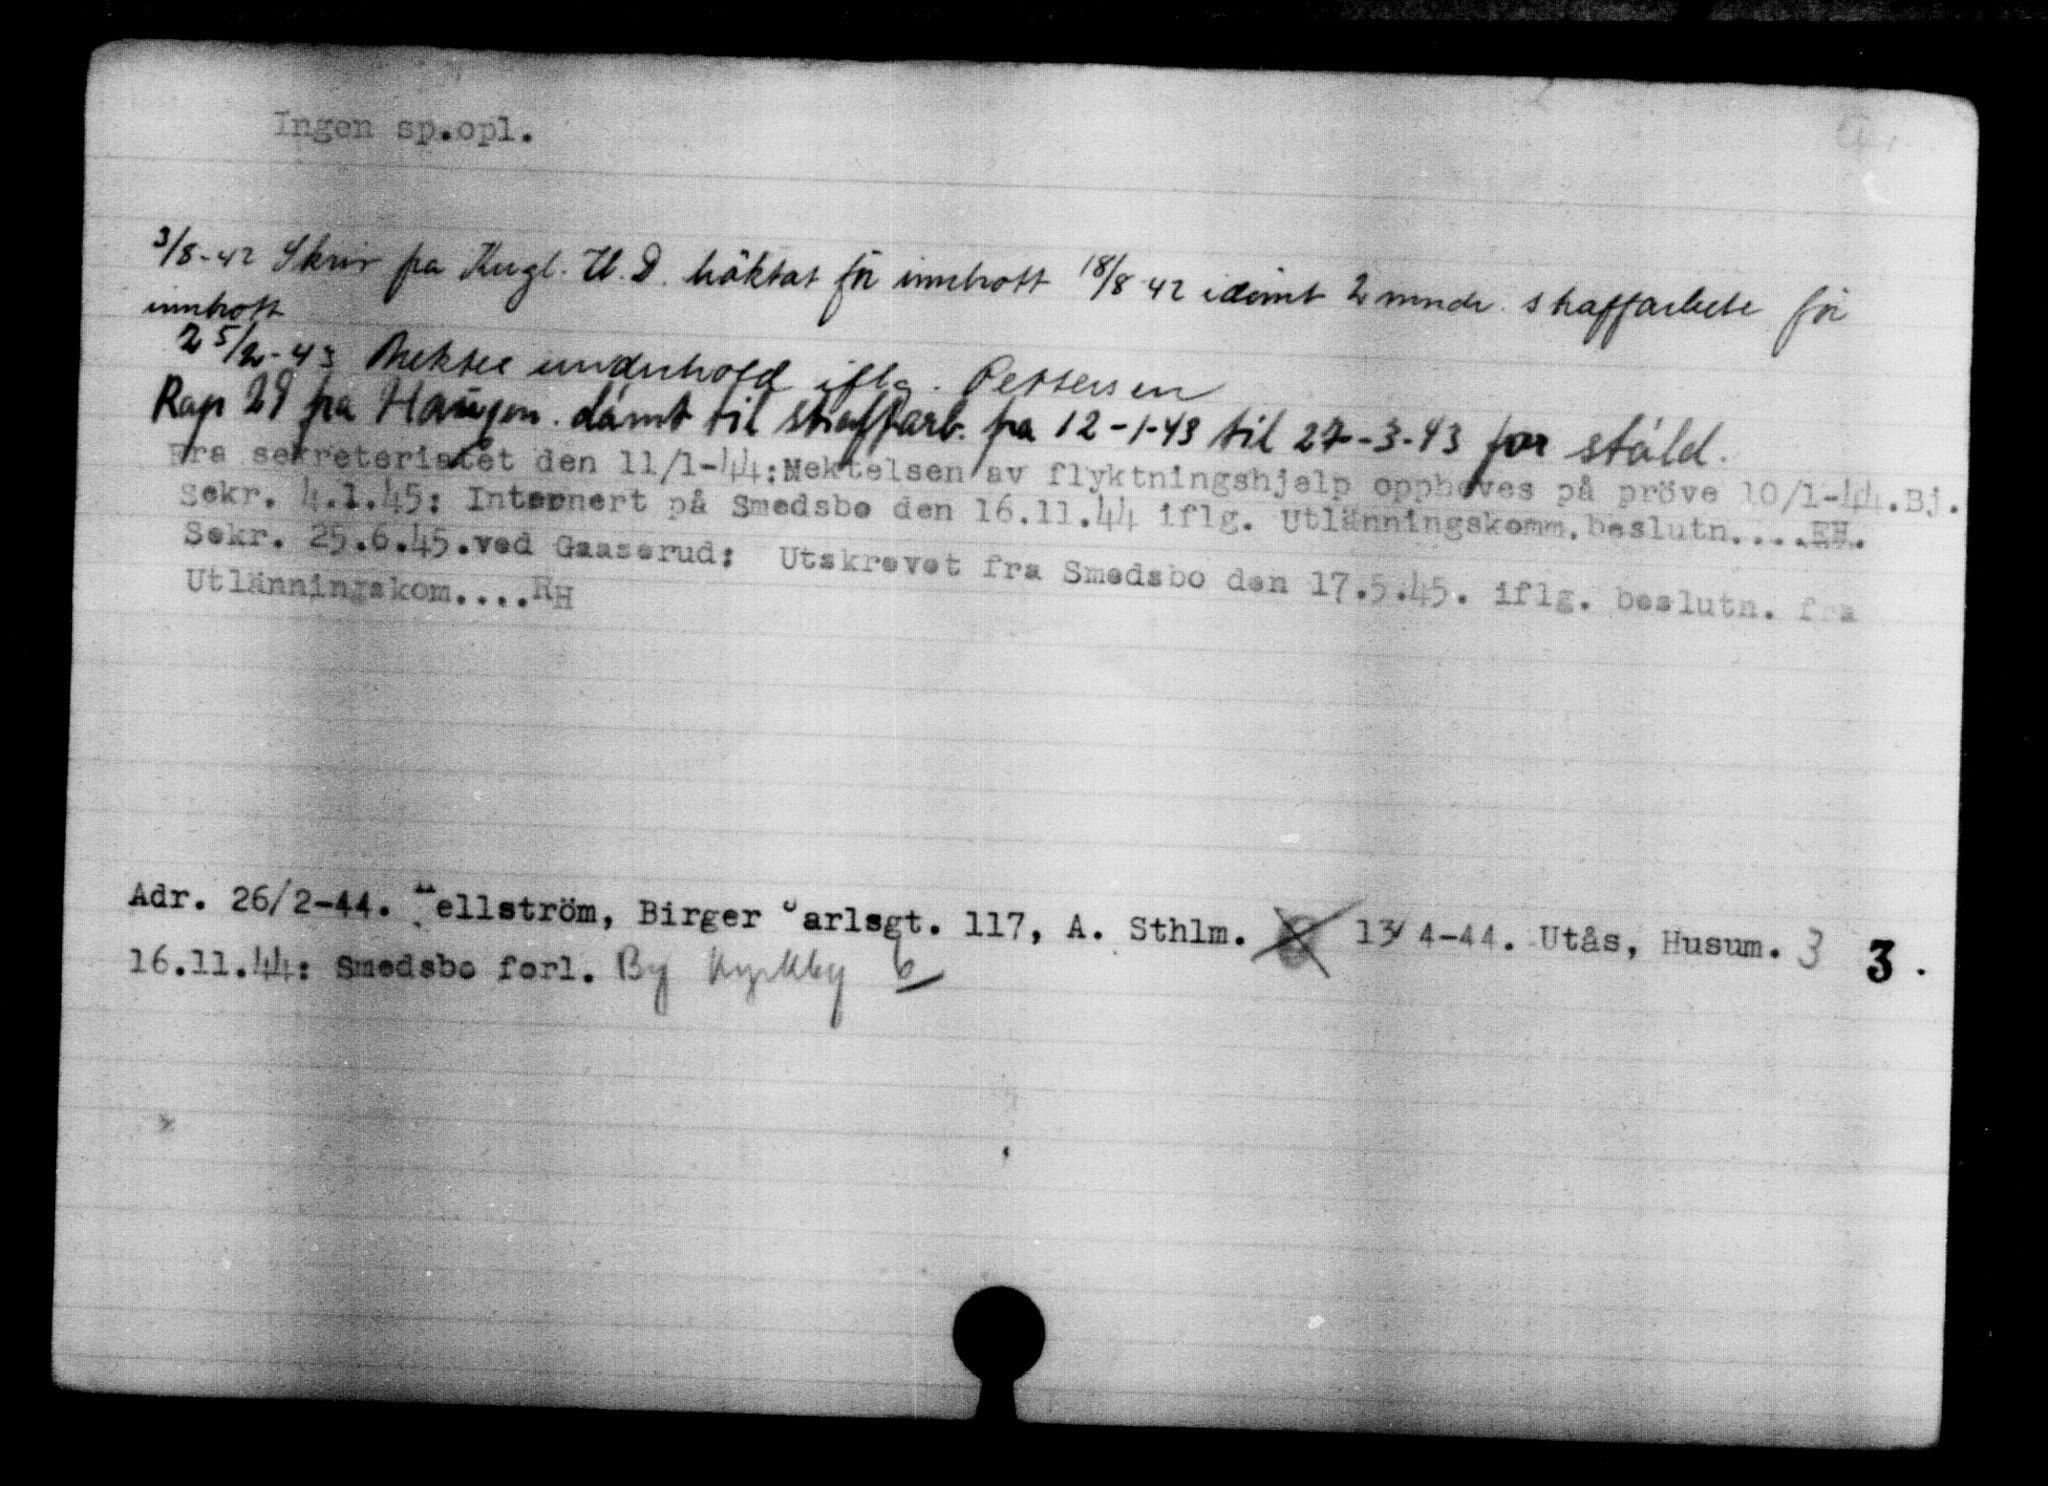 Ingen sp.opl.
3/8-42 Skriv fra Kngl. U.D. häktat för innbrott 18/8 42 idömt 2 mndr. straffarbete för
innbrott
25/2-43 Nektes underhold iflg. Pettersen
Rap 29 fra Haugen. dömt til straffarb. fra 12-1-43 til 27-3-43 for stöld.
Fra sekreteriatet den 11/1-44:Nektelsen av flyktningshjelp oppheves på pröve 10/1-44.Bj.
Sekr. 4.1.45: Internert på Smedsbo den 16.11.44 iflg. Utlänningskomm.beslutn....RH.
Sekr. 25.6.45.ved Gaaserud: Utskrevet fra Smedsbo den 17.5.45. iflg. beslutn. fra
Utlänningskom....RH
Adr. 26/2-44. ellström, Birger Jarlsgt. 117, A. Sthlm. 13/4-44. Utås, Husum. 3 3.
16.11.44: Smedsbo forl. By Kyrkby 6